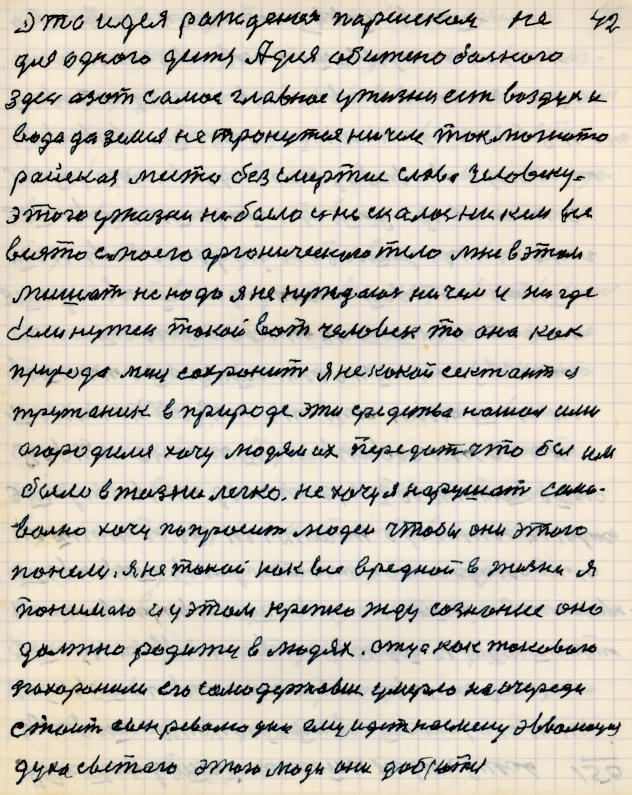 Это идея рождения парнском не 42
для одного дитя А для обижено больного
здес азот самое главное у жизни есть воздух и
вода да земля не тронутая ничем только то
райская место без смертие слова человеку.
этого у жизни не было и не искалось никем все
взято с моего органического тело мне в этом
мишать не надо я не нуждаюсь ничем и нигде
Если нужен такой вот человек то она как
природа мене сохранить я не какой сектант я
труженик в природе эти средства нашол или
огородился хочу людям их передать что бы им
было в жизни легко. не хочу я нарушать само-
волно хочу попросить людей чтобы они этого
поняли. я не такой как все вредной в жизни я
понимаю и у этом крепко жду сознание оно
должно родится в людях. отца как такового
похоронили его самодержавие умерло на очереди
стоит сын революция ему идет на смену эволюция
духа святого этого люди они добются